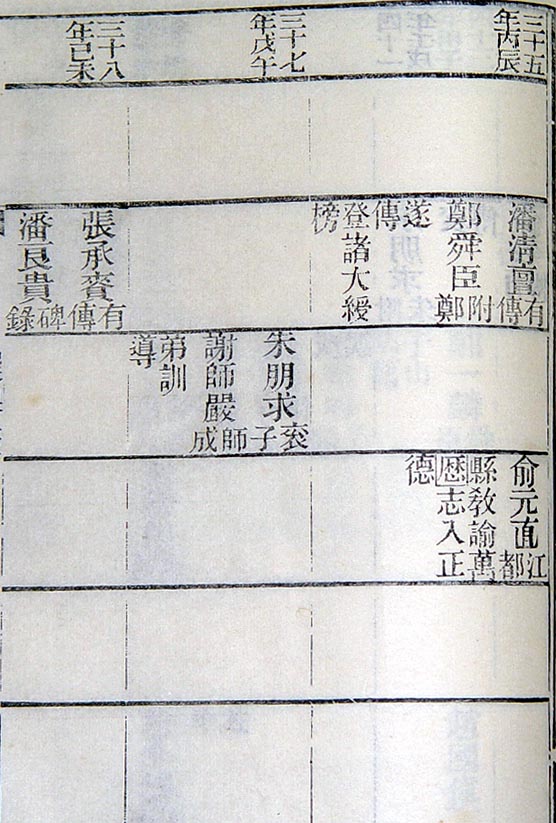 三十五
年丙辰
三十七
年戊午
三十八
年己未
潘清亶有傳
鄭舜臣附鄭
遂
傳
登諸大綬
榜
張承賚有傳
潘良貴碑錄
朱朋求衮子
謝師嚴師成
弟訓
導
俞元直江都
縣教諭萬
歴志入正
德